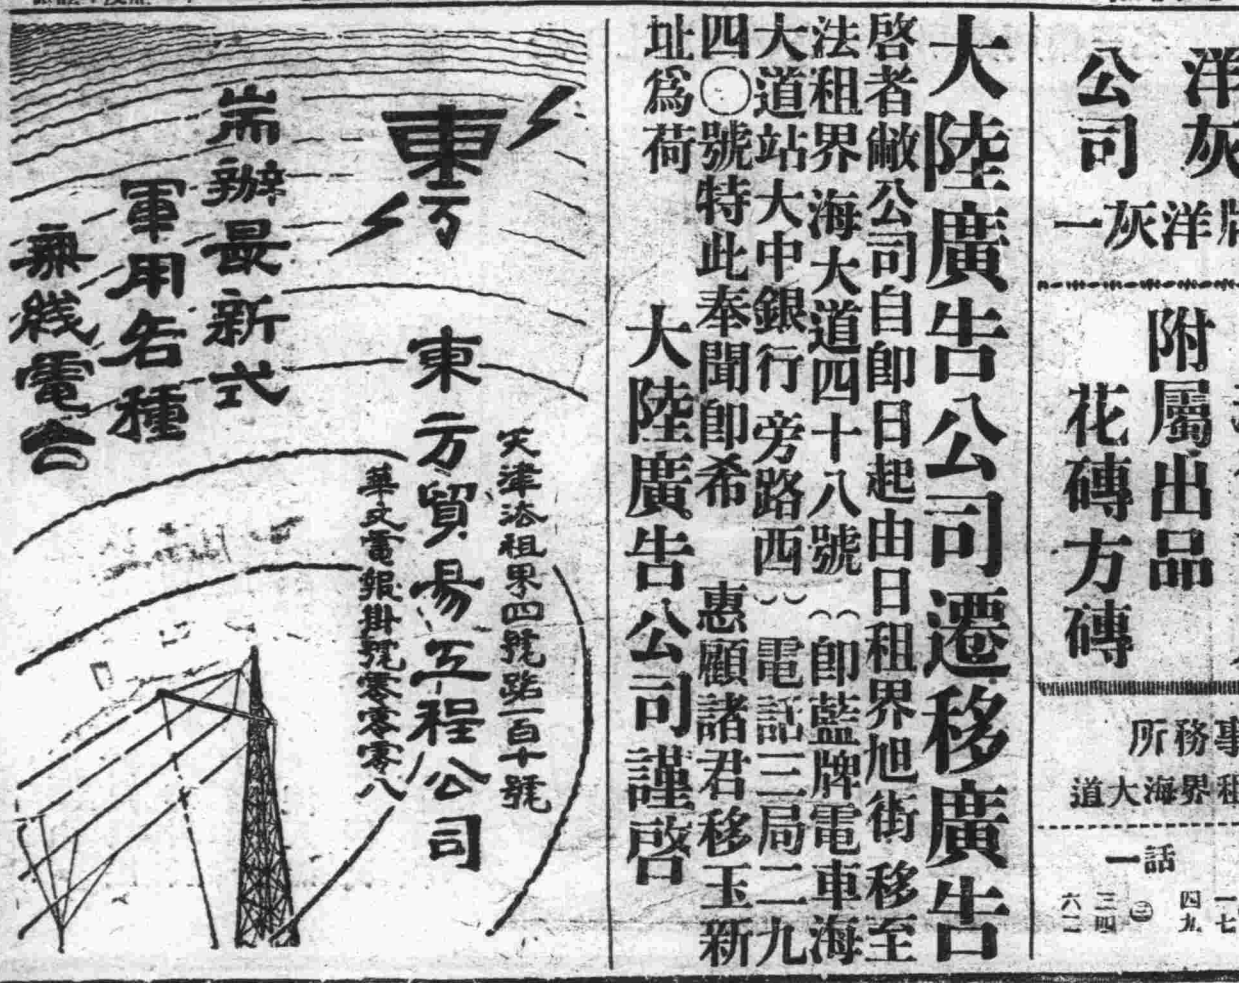 洋灰
公司
一灰洋牌
附屬出品
花磚方磚
所務事
道大海界租
一話
大陸廣告公司遷移廣告
啓者敝公司自卽日起由日租界旭街移至
法租界海大道四十八號(卽藍牌電車海
大道站大中銀行旁路西)電話三局二九
四〇號特此奉聞卽希 惠顧諸君移玉新
址爲荷 大陸廣告公司謹啓
東方
天津法租界四號路一百十號
東方貿易工程公司
華文電報掛號零零零八
耑辦最新式
軍用各種
無綫電台